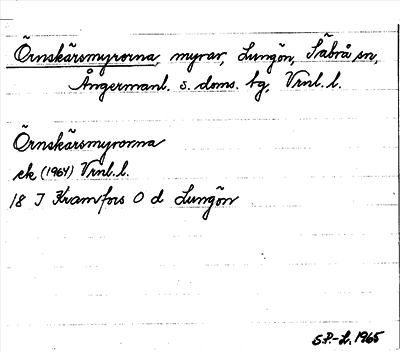 Örnskärsmyrorna, myrar, Lungön, Säbrå sn,
Ångermanl. s. doms. tg, Vrnl. l.
Örnskärsmyrorna
ek (1964) Vrnl. l.
18 I Kramfors O d Lungön
S.P.-L. 1965